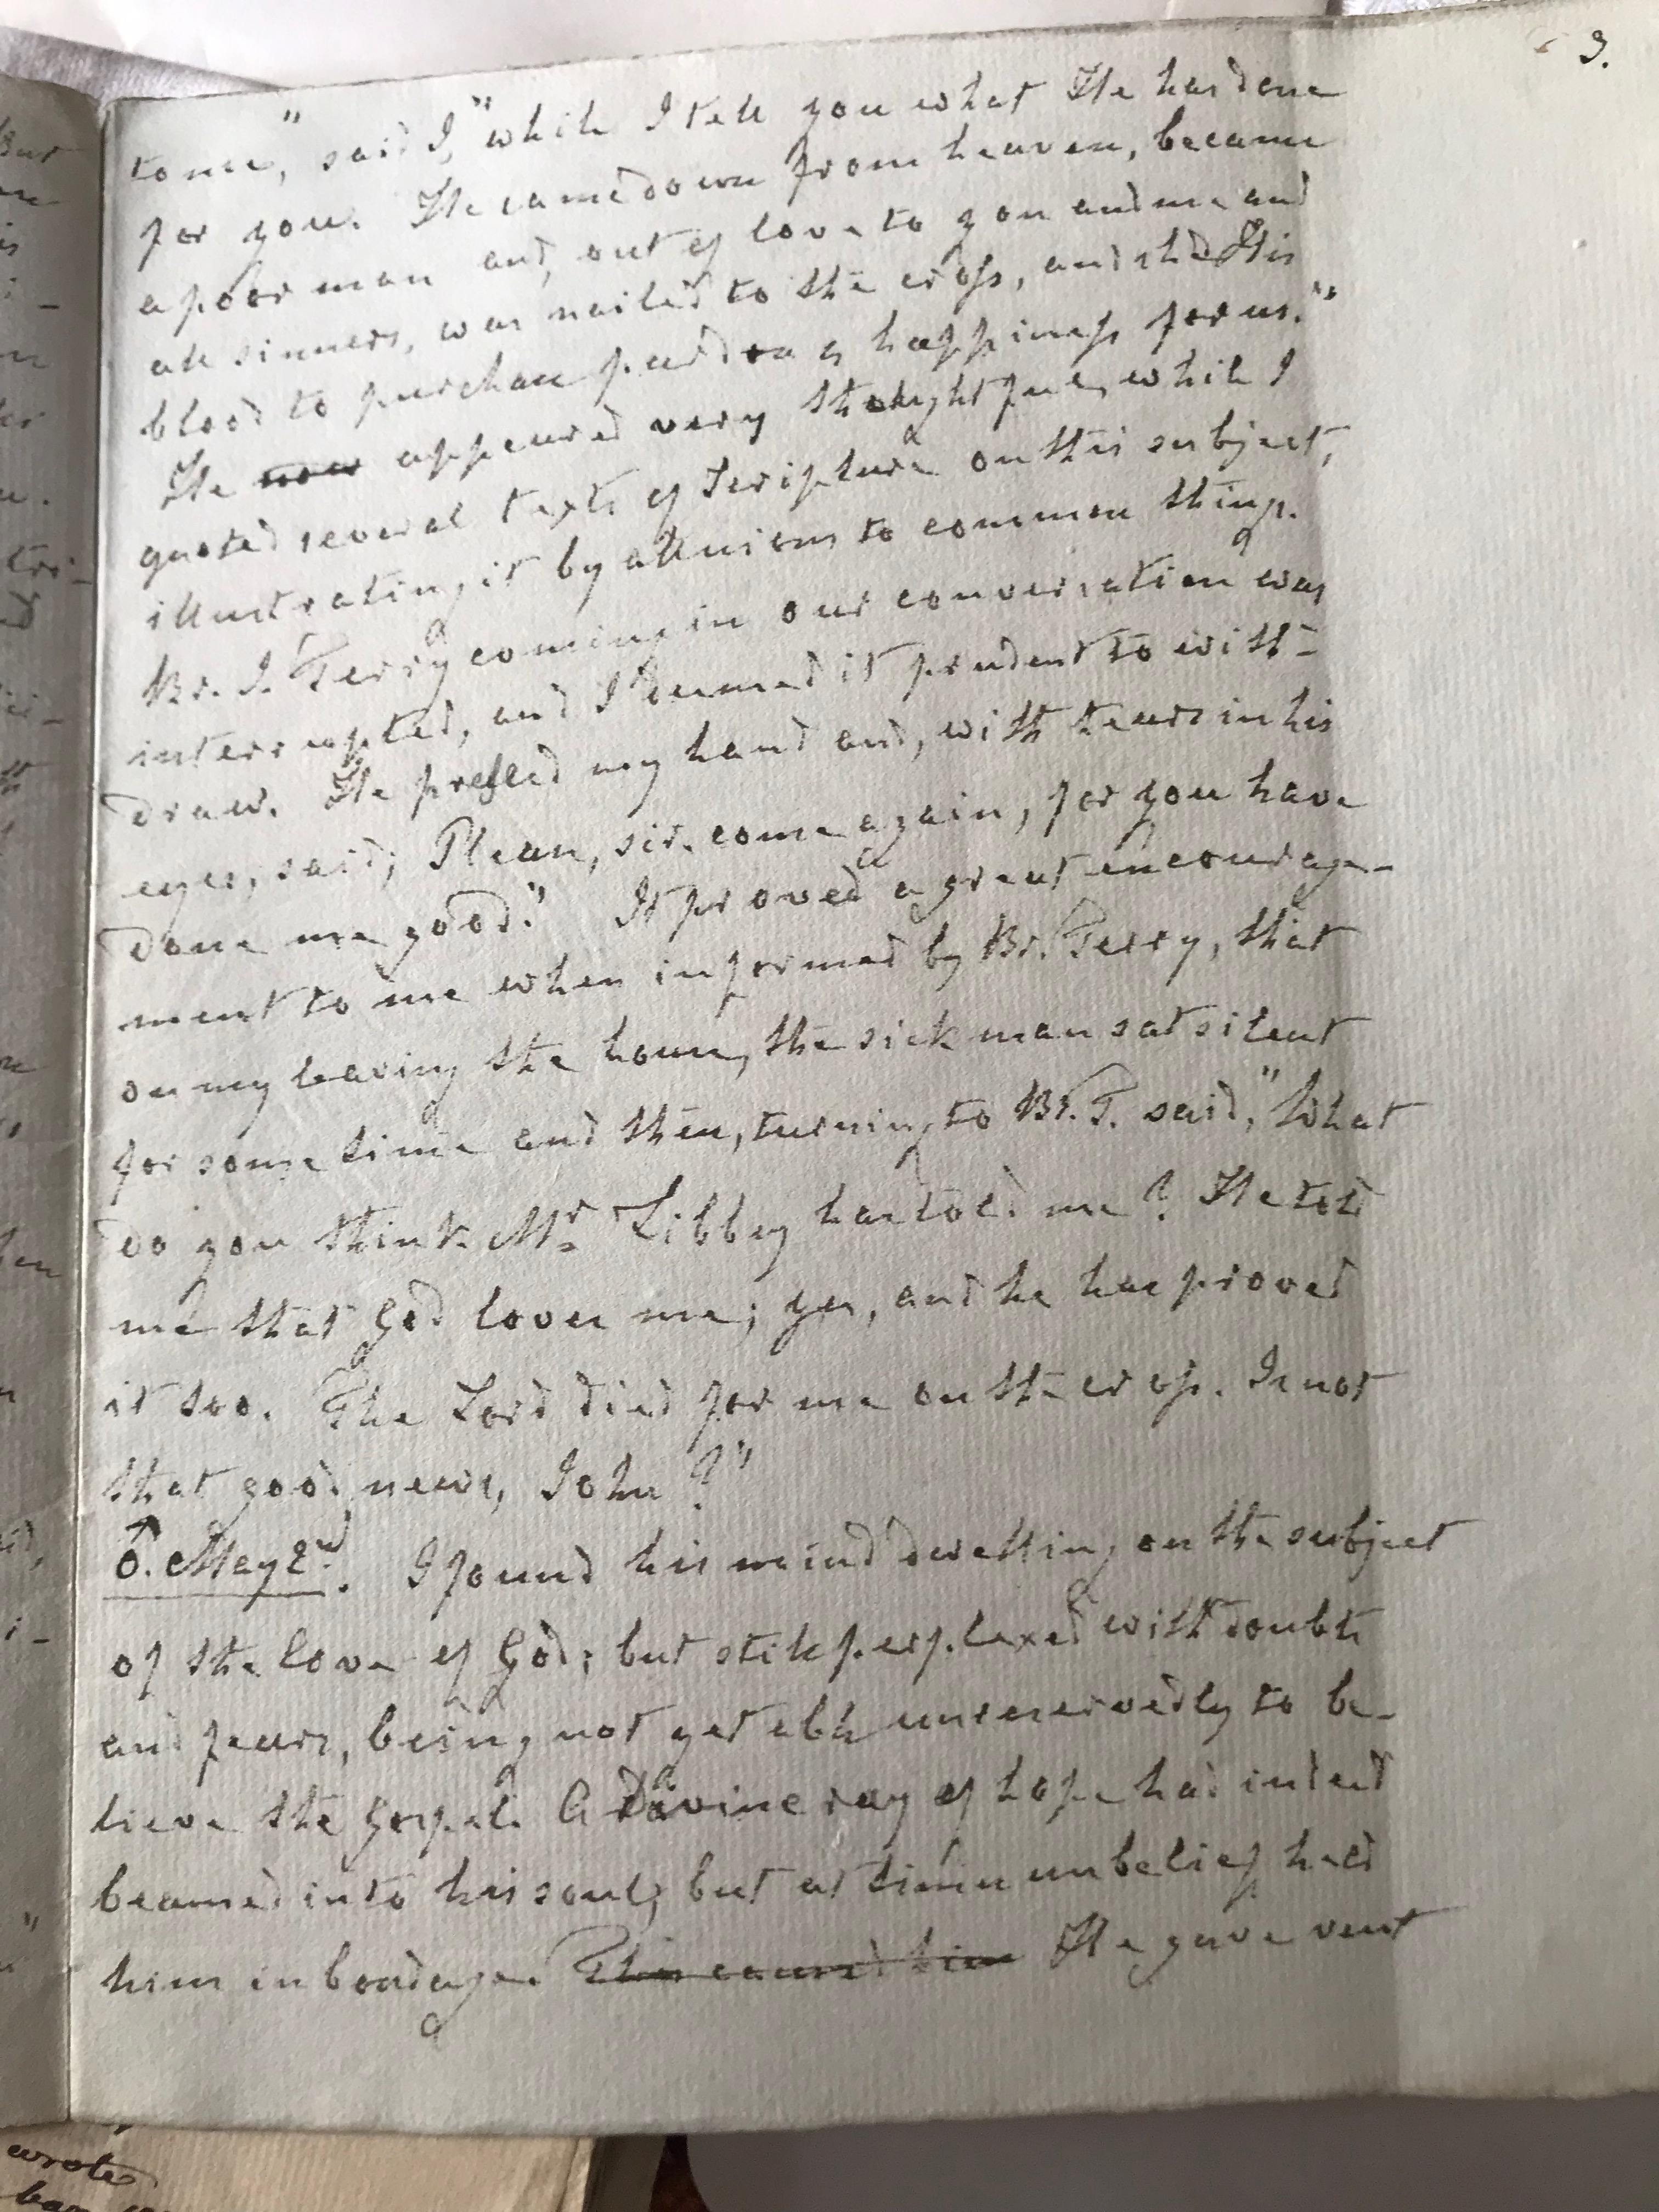 3.
to me," said I, "while I tell you what He has done
for you. He came down from heaven, became
a poor man and, out of love to you and me and
all sinners, was nailed to the cross, and shed His
blood to purchase pardon & happiness for us."
He now appeared very thoughtful, while I
quoted several texts of Scripture on this subject,
illustrating it by allusions to common things.
Br. J. Terry coming in our conversation was
interrupted, and I deemed it prudent to with-
draw. He pressed my hand and, with tears in his
eyes, said; Please, sir, come again, for you have
done me good." It proved a great encourage-
ment to me when informed by Br. Terry, that
on my leaving the house, the sick man sat silent
for some time and then, turning to Br. T. said, "What
do you think Mr. Libbey has told me? He told
me that God loves me; yes, and he has proved
it too. The Lord died for me on the cross. Is not
that good news, John?"
May 2nd. I found his mind dwelling on the subject
of the love of God; but still perplexed with doubts
and fears, being not yet able unreservedly to be-
lieve the Gospel. A Divine ray of hope had indeed
beamed into his soul, but at times unbelief held
him in bondage. This caused him He gave vent
wrote